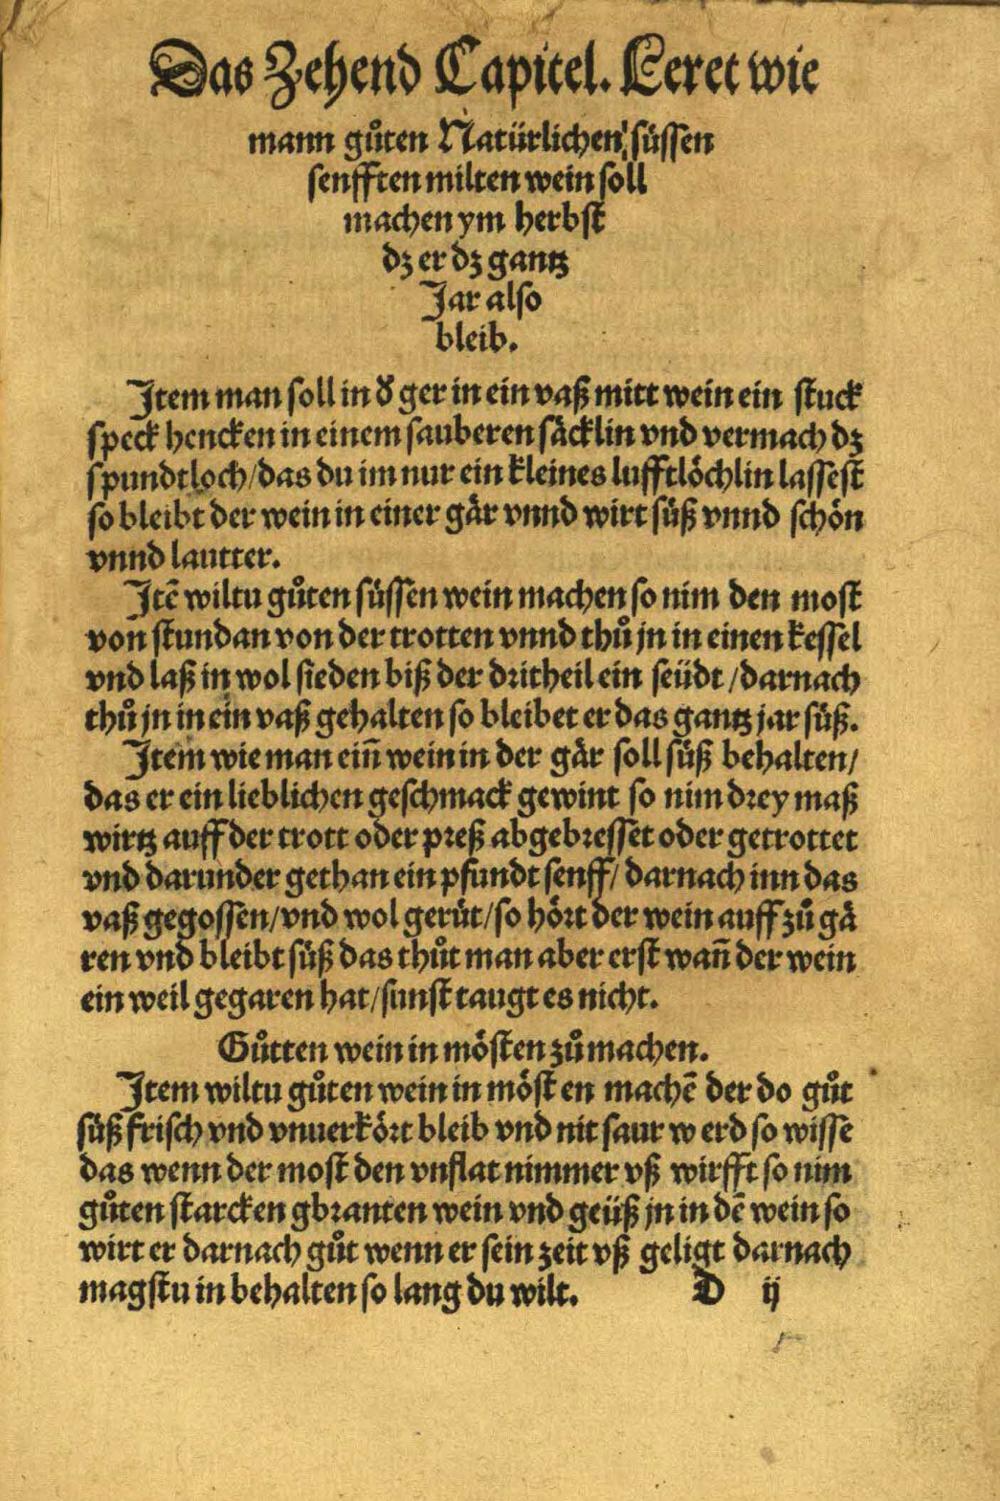 Das Zehend Capitel. Leret wie
mann gůten Natürlichen süssen
senfften milten wein soll
machen ym herbst
dz er dz gantz
Jar also
bleib.
Item man soll in d' ger in ein vaß mitt wein ein stuck
speck hencken in einem sauberen säcklin vnd vermach dz
spundtloch/das du im nur ein kleines lufftlöchlin lassest
so bleibt der wein in einer gär vnnd wirt süß vnnd schön
vnnd lautter.
Itē wiltu gůten süssen wein machen so nim den most
von stundan von der trotten vnnd thů jn in einen kessel
vnd laß in wol sieden biß der dritheil ein seüdt /darnach
thů jn in ein vaß gehalten so bleibet er das gantz jar süß.
Item wie man ein̄ wein in der gär soll süß behalten/
das er ein lieblichen geschmack gewint so nim drey maß
wirtz auff der trott oder preß abgebresset oder getrottet
vnd darunder gethan ein pfundt senff/ darnach inn das
vaß gegossen/vnd wol gerüt/so hört der wein auff zů gä
ren vnd bleibt süß das thůt man aber erst wan̄ der wein
ein weil gegaren hat/sunst taugt es nicht.
Gůtten wein in mösten zů machen.
Item wiltu gůten wein in möst en machē der do gůt
süß frisch vnd vnuerkört bleib vnd nit saur w erd so wisse
das wenn der most den vnflat nimmer vß wirfft so nim
gůten starcken gbranten wein vnd geüß jn in dē wein so
wirt er darnach gůt wenn er sein zeit vß geligt darnach
magstu in behalten so lang du wilt. D ij